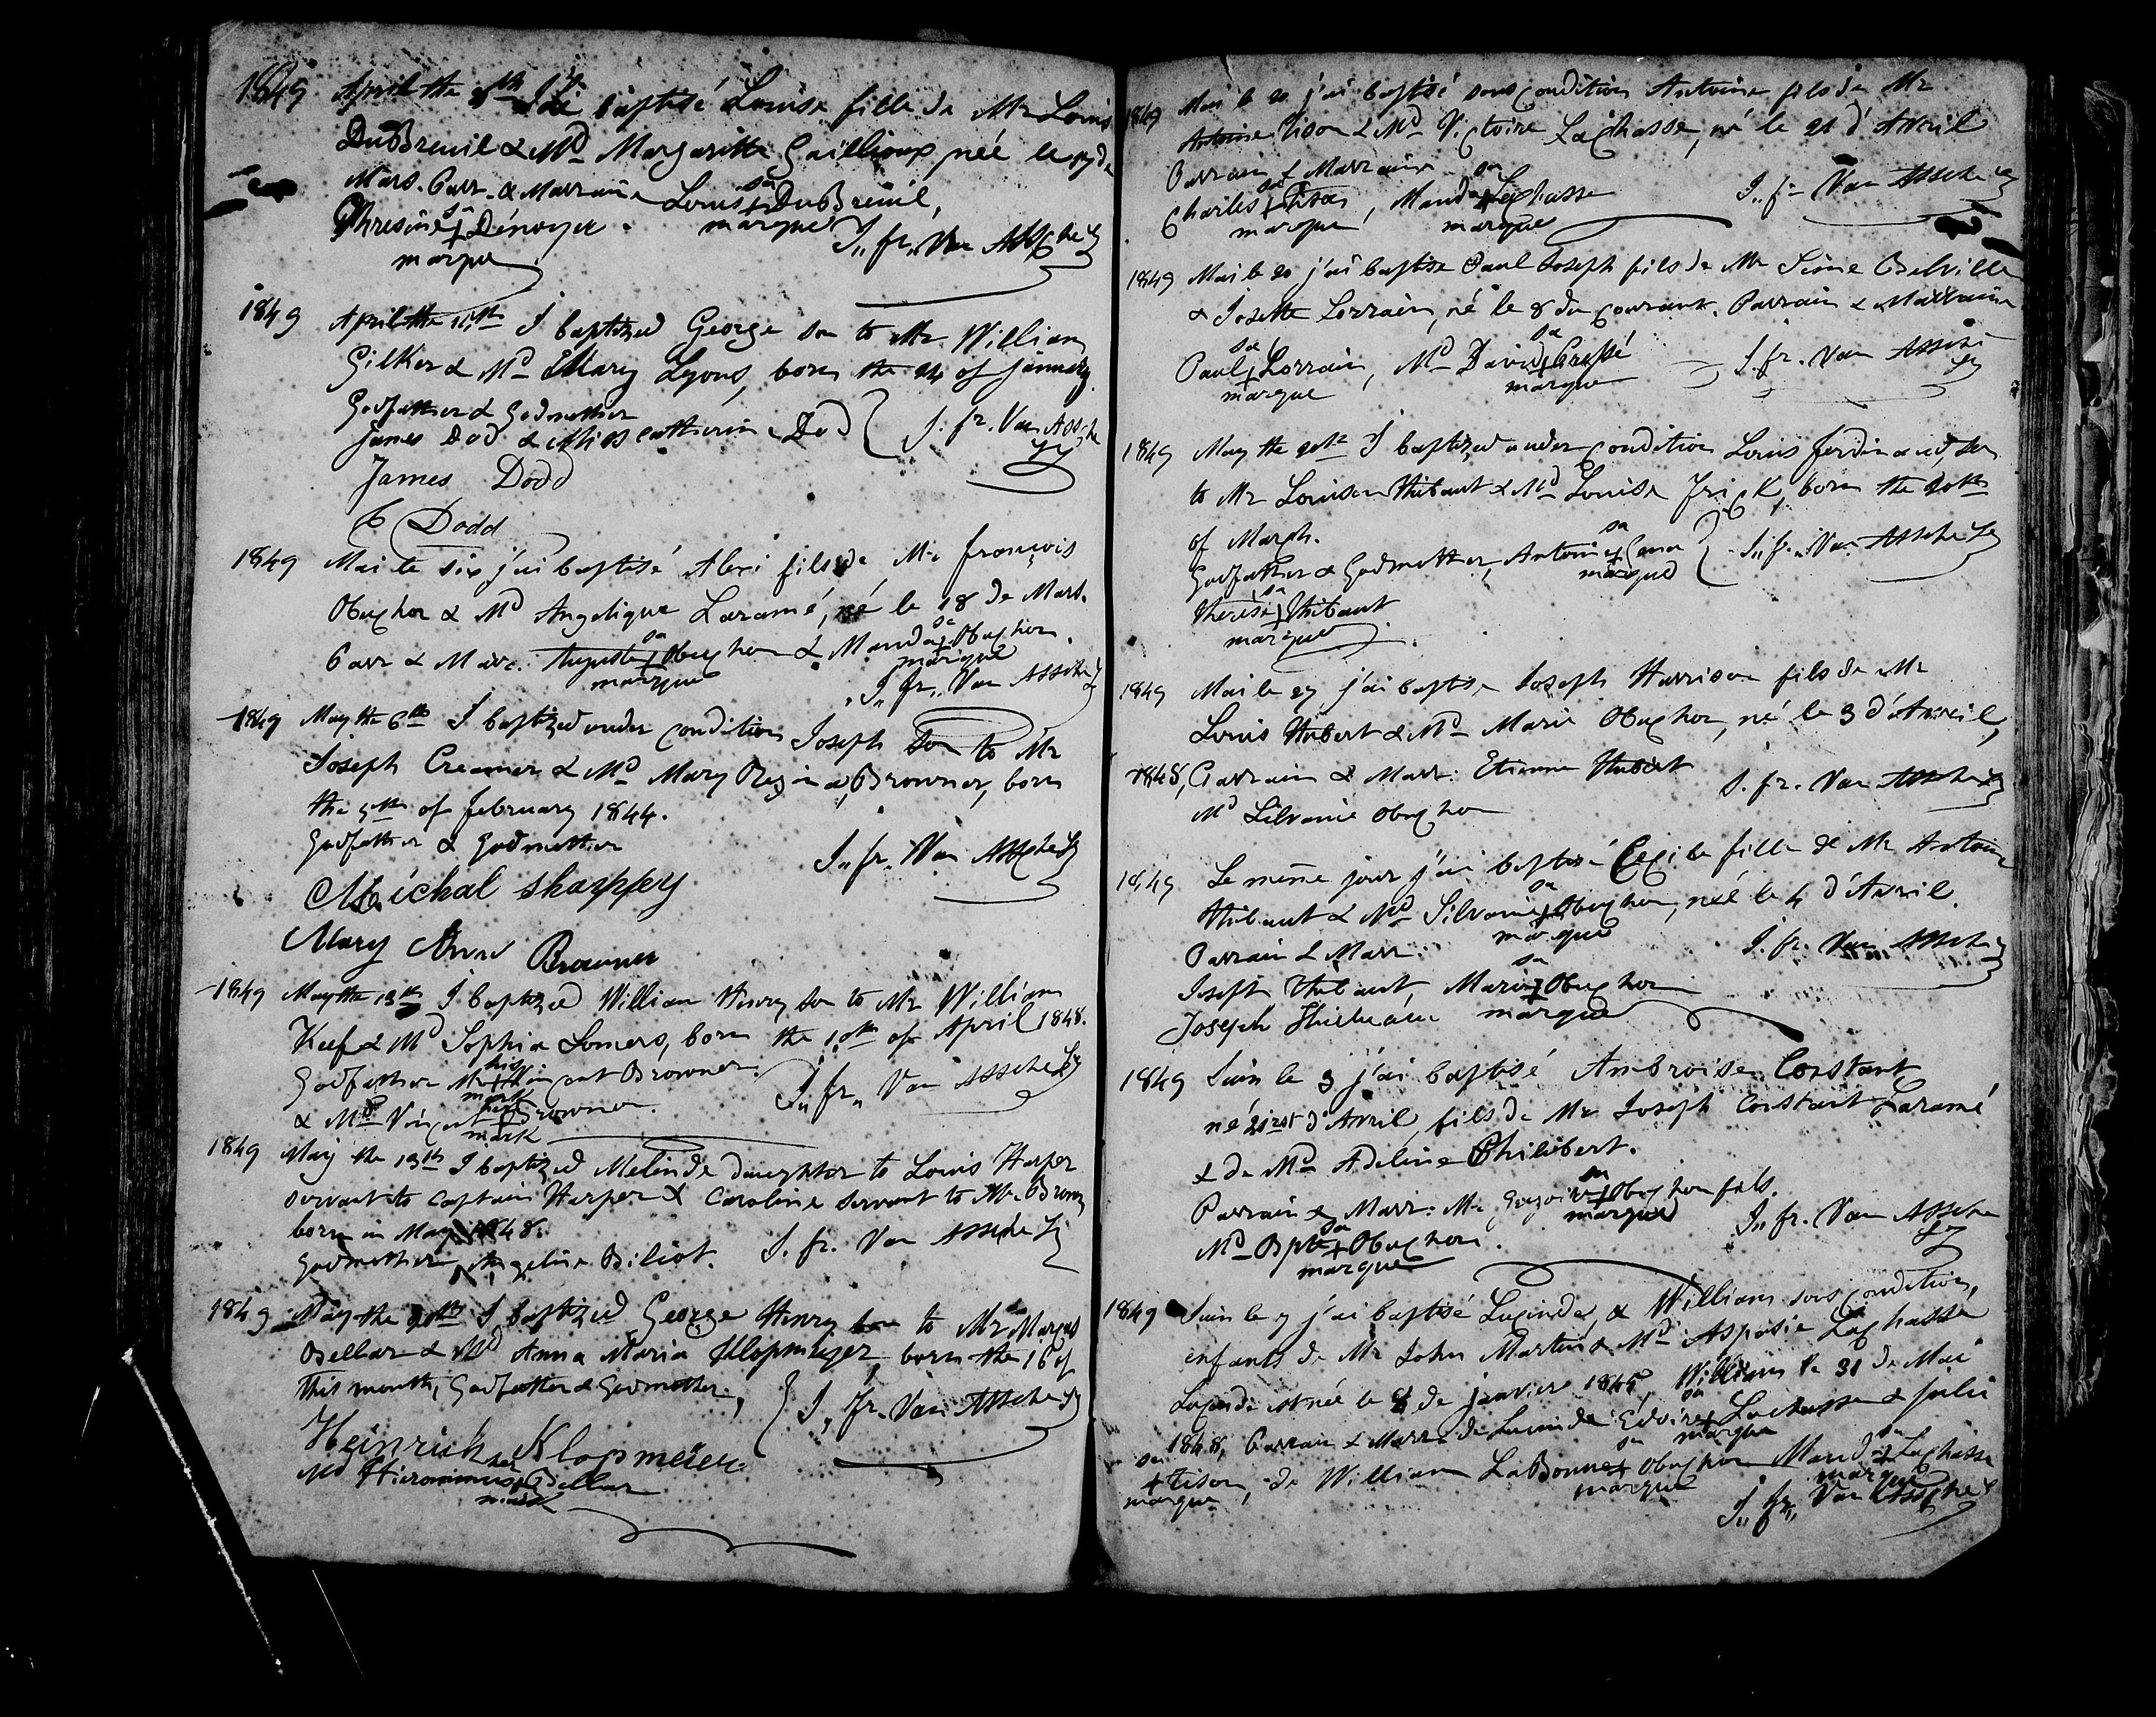 1849 April the 8th j'ai baptisé Louise fille de Mr Louis
DuBreuil & Md Margaritte Gaillioux née le de
Mars. Parr. & Marraine Louis + DuBreuil,
sa
Théresine + Dénoyer. marque J. fr. Van Assche Sj
marque
1849 April the 15th I baptized George son to Mr William
Gilker & Md Mary Lyons, born the 24 of january
Godfather & Godmother
James Dod & Miss catherin Dod } J. fr. Van Assche
Sj
James Dodd
C Dodd
1849 Mai le six j'ai baptisé Alexi fils de Mr françois
Obuchon & Md Angelique Laramé, né le 18 de Mars.
Parr & Marr. Auguste + Obuchon & Mand + Obuchon.
sa marque sa marque
J. fr. Van Assche Sj
1849 May the 6th I baptized under condition Joseph son to Mr
Joseph Creamer & Md Mary Regina Browner, born
the 5th of february 1844.
Godfather & godmother
J. fr. Van Assche Sj
Michal sharppey
Mary Ann Browner
1849 May the 13th I baptized William Henry son to Mr William
Keef & Md Sophia Somers, born the 10th of April 1848.
Godfather Mr + Vinçent Browner. J. fr. Van Assche Sj
his mark
& Md Vinçent + Browner.
her mark
1849 May the 13th I baptized Melinde daughter to Louis Harper
servant to captain Harper & Caroline servant to Mr Brown
born in May 1848.
Godmother Angeline Biliot. J. fr. Van Assche Sj
1849 May the 20th I baptized George Henry son to Mr Marcus
Bellar & Md Anna Maria Klopmeyer, born the 16 of
this month, Godfather & Godmother, } J. fr. Van Assche Sj
Heinrich Klopmeier
her
Md Hieronimus + Bellar
mark
1849 Mai le 20 j'ai baptisé sous condition Antoine fils de Mr
Antoine Tison & Md Victoire Laçhasse, né le 21 d'Avril
Parrain & Marraine
sa sa
Charles + Tison, Mand + Laçhasse J. fr. Van Assche Sj
marque marque
1849 Mai le 20 j'ai baptisé Paul Joseph fils de Mr Belville
& Josette Lorrain, né le 8 du courant. Parrain & Marraine
sa sa
Paul + Lorrain, Md David + J. fr. Van Assche
marque marque Sj
1849 May the 20th I baptized under condition Louis ferdinand, son
to Mr Louison Thibaut & Md Louisa Frick, born the 20th
of March.
sa
Godfather & Godmother, Antoine + } J. fr. Van Assche Sj
sa marque
Therese + Thibaut
marque
1849 Mai le 27 j'ai baptisé Joseph Harrison fils de Mr
Louis Hubert & Md Marie Obuchon, né le 3 d'Avril,
1848, Parrain & Marr: Etienne Hubert J. fr. Van Assche Sj
Md Silvanie Obuchon
1849 Le même jour j'ai baptisé Cecile fille de Mr Antoine
sa
Thibaut & Md Silvanie + Obuchon, née le 4 d'Avril.
marque
Parrain & Marr. J. fr. Van Assche Sj
sa
Joseph Thibaut, Marie + Obuchon
Joseph Thibeau marque
1849 Juin le 3 j'ai baptisé Ambroise Constant
né 21rst d'Avril, fils de Mr Joseph Constant Laramé
& de Md Adeline Philibert.
sa
Parrain & Marr: Mr Gregoire + Obuchon fils.
sa marque J. fr. Van Assche
Md Bpte + Obuchon. Sj
marque
1849 Juin le 7 j'ai baptisé Luçinde & William sous condition,
enfants de Mr John Martin & Md Aspasie Laçhasse
Luçinde est née le 8 de janvier 1845, William le 31 de Mai
sa
1848, Parrain & Marr. de Lucinde + Lachasse & julie
sa sa marque sa
+ Tison, de William LaBonne + Obuchon Mand + Laçhasse
marque marque marque
J. fr. Van Assche Sj